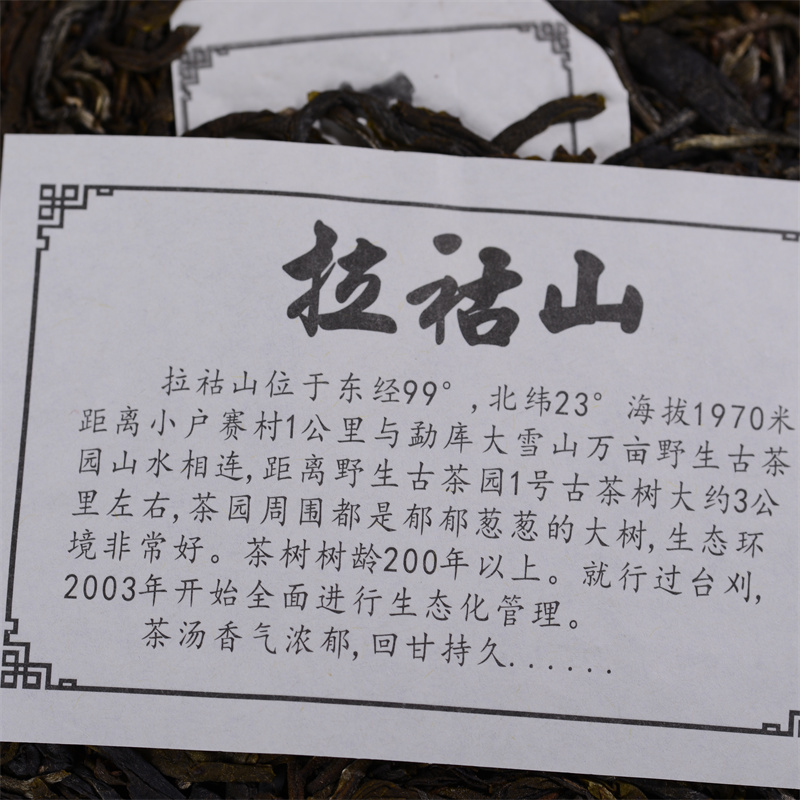 拉祜山
拉祜山位于东经99°,北纬23° 海拔1970米
距离小户赛村1公里与勐库大雪山万亩野生古茶
园山水相连,距离野生古茶园1号古茶树大约3公
里左右,茶园周围都是郁郁葱葱的大树,生态环
境非常好。茶树树龄200年以上。就行过台刈,
2003年开始全面进行生态化管理。
茶汤香气浓郁,回甘持久......